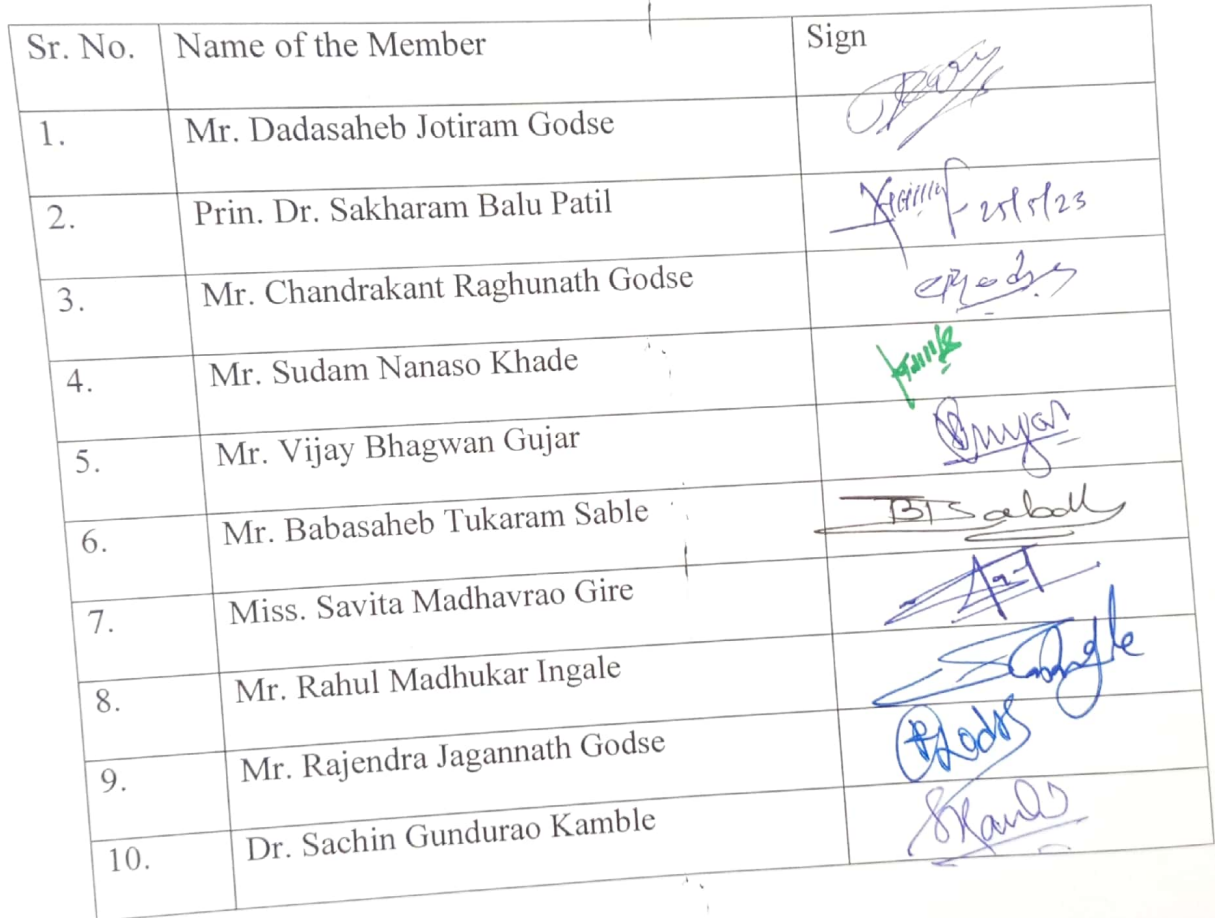 Sr. No. Name of the Member Sign
1. Mr. Dadasaheb Jotiram Godse
2. Prin. Dr. Sakharam Balu Patil 25/5/23
3. Mr. Chandrakant Raghunath Godse
4. Mr. Sudam Nanaso Khade
5. Mr. Vijay Bhagwan Gujar
6. Mr. Babasaheb Tukaram Sable
7. Miss. Savita Madhavrao Gire
8. Mr. Rahul Madhukar Ingale
9. Mr. Rajendra Jagannath Godse
10. Dr. Sachin Gundurao Kamble